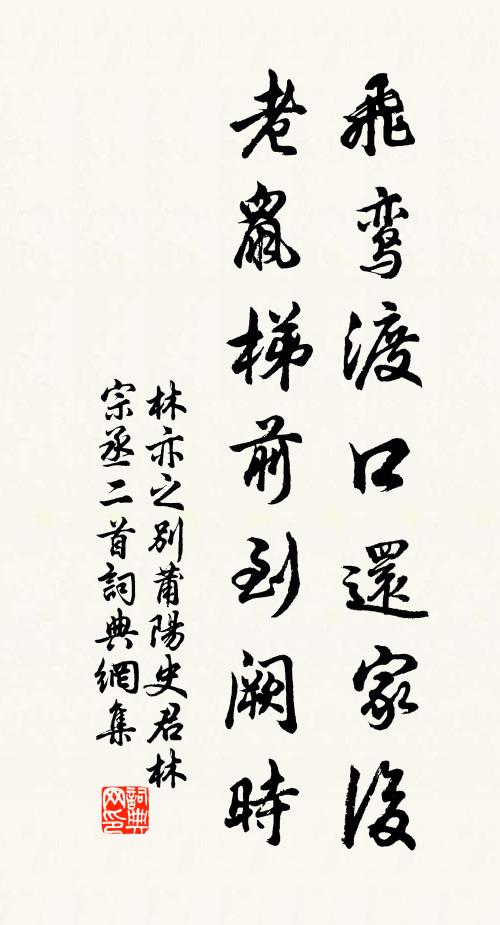 飛鸾渡口還家後
老鼠梯前到闕時
林亦之别莆陽史君林
宗丞二首詞典網集
詞典网印